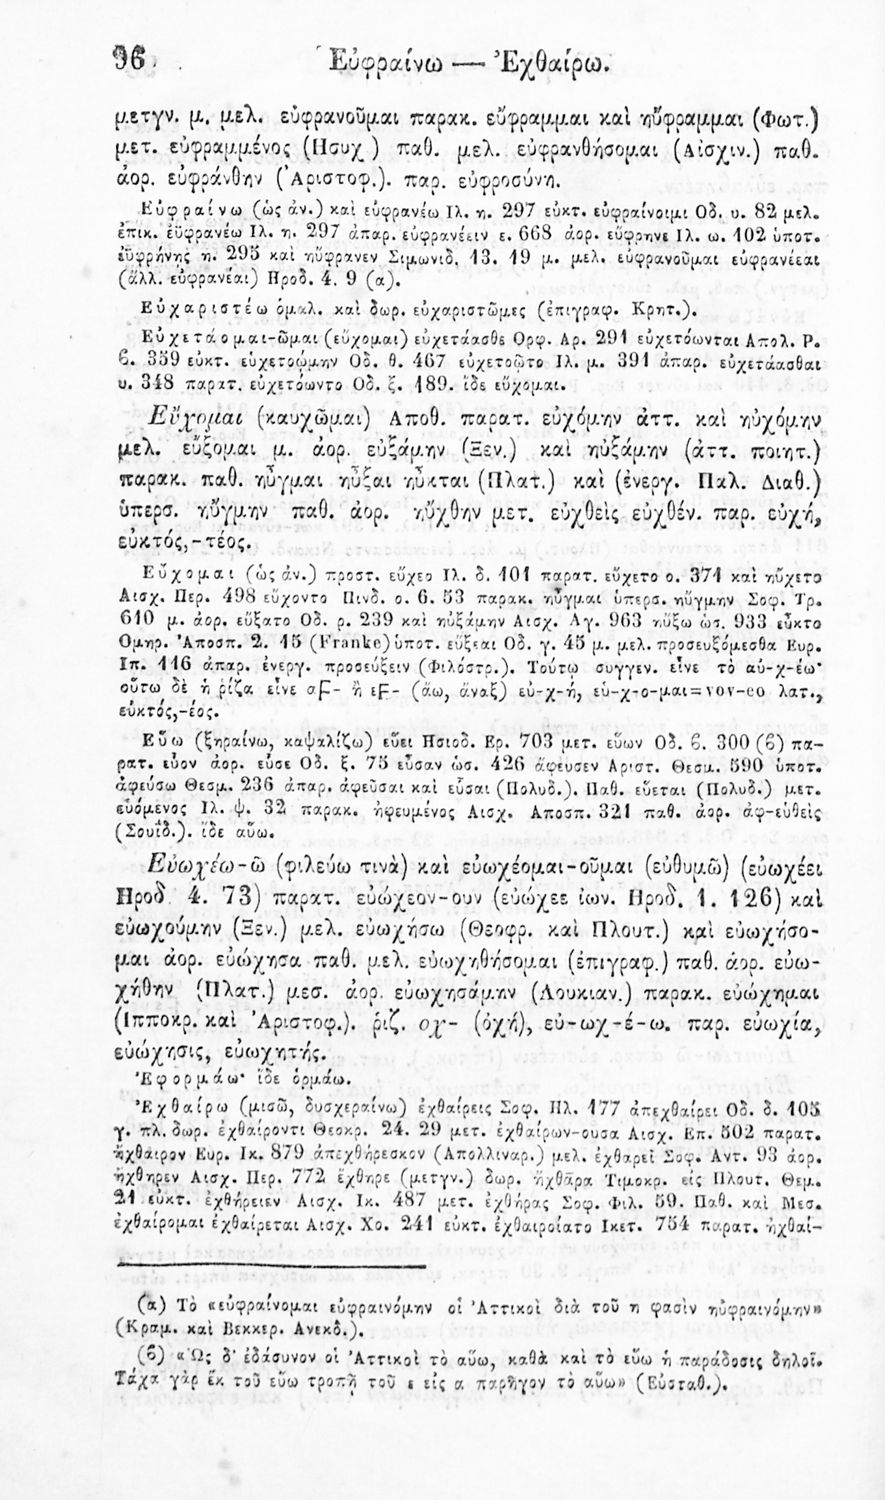 96.
Εὐφραίνω — Ἐχθαίρω.
μετγν. μ. μελ. εὐφρανοῦμαι παρακ. εὔφραμμαι καὶ ηὔφραμμαι (Φωτ.)
μετ. εὐφραμμένος (Ησυχ ) παθ. μελ. εὐφρανθήσομαι (Αἰσχιν.) παθ.
ἀορ. εὐφράνθην (Ἀριστοφ.). παρ. εὐφροσύνη.
Εὐφραίνω (ὡς ἀν.) καὶ εὐφρανέω Ιλ. η. 297 εὐκτ. εὐφραίνοιμι Οδ. υ. 82 μελ.
ἐπικ. ἐϋφρανέω Ιλ. η. 297 ἀπαρ. εὐφρανέειν ε. 668 ἀορ. εὔφρηνε Ιλ. ω. 102 ὑποτ.
ἐϋφρήνῃς η. 295 καὶ ηὔφρανεν Σιμωνιδ. 13. 19 μ. μελ. εὐφρανοῦμαι εὐφρανέεαι
(ἀλλ. εὐφρανέαι) Ηροδ. 4. 9 (α).
Εὐχαριστέω ὁμαλ. καὶ δωρ. εὐχαριστῶμες (ἐπιγραφ. Κρητ.).
Εὐχετάομαι-ῶμαι (εὔχομαι) εὐχετάασθε Ορφ. Αρ. 291 εὐχετόωνται Απολ. Ρ.
ϐ. 359 εὐκτ. εὐχετοῴμην Οδ. θ. 467 εὐχετοῷτο Ιλ. μ. 391 ἀπαρ. εὐχετάασθαι
υ. 348 παρατ. εὐχετόωντο Οδ. ξ. 189. ἴδε εὔχομαι.
Εὔχομαι (καυχῶμαι) Αποθ. παρατ. εὐχόμην ἀττ. καὶ ηὐχόμην
μελ. εὔξομαι μ. ἀορ. εὐξάμην (Ξεν.) καὶ ηὐξάμην (ἀττ. ποιητ.)
παρακ. παθ. ηὖγμαι ηὖξαι ηὖκται (Πλατ.) καὶ (ἐνεργ. Παλ. Διαθ.)
ὑπερσ. ηὔγμην παθ. ἀορ. ηὔχθην μετ. εὐχθεὶς εὐχθέν. παρ. εὐχή,
εὐκτός,-τέος.
Εὔχομαι (ὡς ἀν.) προστ. εὔχεο Ιλ. δ. 101 παρατ. εὔχετο ο. 371 καὶ ηὔχετο
Αισχ. Περ. 498 εὔχοντο Πινδ. ο. 6. 53 παρακ. ηὖγμαι ὑπερσ. ηὔγμην Σοφ. Τρ.
610 μ. ἀορ. εὔξατο Οδ. ρ. 239 καὶ ηὐξάμην Αισχ. Αγ. 963 ηὔξω ὡσ. 933 εὖκτο
Ομηρ. Ἀποσπ. 2. 15 (Franke) ὑποτ. εὔξεαι Οδ. γ. 45 μ. μελ. προσευξόμεσθα Ευρ.
Ιπ. 116 ἀπαρ. ἐνεργ. προσεύξειν (Φιλόστρ.). Τούτῳ συγγεν. εἶνε τὸ αὐ-χ-έω·
οὕτω δὲ ἡ ρίζα εἶνε αϝ- ἢ εϝ- (ἄω, ἄναξ) εὐ-χ-ή, εὐ-χ-ο-μαι=vov-eo λατ.,
εὐκτός,-έος.
Εὕω (ξηραίνω, καψαλίζω) εὕει Ησιοδ. Ερ. 703 μετ. εὕων Οδ. ϐ. 300 (ϐ) πα-
ρατ. εὗον ἀορ. εὗσε Οδ. ξ. 75 εὗσαν ὡσ. 426 ἄφευσεν Αριστ. Θεσμ. 590 ὑποτ.
ἀφεύσω Θεσμ. 236 ἀπαρ. ἀφεῦσαι καὶ εὗσαι (Πολυδ.). Παθ. εὕεται (Πολυδ.) μετ.
εὑόμενος Ιλ. ψ. 32 παρακ. ἠφευμένος Αισχ. Αποσπ. 321 παθ. ἀορ. ἀφ-ευθεὶς
(Σουΐδ.). ἴδε αὔω.
Εὐωχέω-ῶ (φιλεύω τινὰ) καὶ εὐωχέομαι-οῦμαι (εὐθυμῶ) (εὐωχέει
Ηροδ 4. 73) παρατ. εὐώχεον-ουν (εὐώχεε ἰων. Ηροδ. 1. 126) καὶ
εὐωχούμην (Ξεν.) μελ. εὐωχήσω (Θεοφρ. καὶ Πλουτ.) καὶ εὐωχήσο-
μαι ἀορ. εὐώχησα παθ. μελ. εὐωχηθήσομαι (ἐπιγραφ.) παθ. ἀορ. εὐω-
χήθην (Πλατ.) μεσ. ἀορ. εὐωχησάμην (Λουκιαν.) παρακ. εὐώχημαι
(Ιπποκρ. καὶ Ἀριστοφ.). ῥιζ. οχ- (ὀχή), εὐ-ωχ-έ-ω. παρ. εὐωχία,
εὐώχησις, εὐωχητής.
Ἐφορμάω· ἴδε ὁρμάω.
Ἐχθαίρω (μισῶ, δυσχεραίνω) ἐχθαίρεις Σοφ. Ηλ. 177 ἀπεχθαίρει Οδ. δ. 105
γ. πλ. δωρ. ἐχθαίροντι Θεοκρ. 24. 29 μετ. ἐχθαίρων-ουσα Αισχ. Επ. 502 παρατ.
ἤχθαιρον Ευρ. Ικ. 879 ἀπεχθήρεσκον (Απολλιναρ.) μελ. ἐχθαρεῖ Σοφ. Αντ. 93 ἀορ.
ἤχθηρεν Αισχ. Περ. 772 ἔχθηρε (μετγν.) δωρ. ἤχθᾱρα Τιμοκρ. εἰς Πλουτ. Θεμ.
21 εὐκτ. ἐχθήρειεν Αισχ. Ικ. 487 μετ. ἐχθήρας Σοφ. Φιλ. 59. Παθ. καὶ Μεσ.
ἐχθαίρομαι ἐχθαίρεται Αισχ. Χο. 241 εὐκτ. ἐχθαιροίατο Ικετ. 754 παρατ. ἠχθαί-
(α) Τὸ «εὐφραίνομαι εὐφραινόμην οἱ Ἀττικοὶ διὰ τοῦ η φασὶν ηὐφραινόμην»
(Κραμ. καὶ Βεκκερ. Ανεκδ.).
(ϐ) «Ὡς δ' ἐδάσυνον οἱ Ἀττικοὶ τὸ αὕω, καθὰ καὶ τὸ εὕω ἡ παράδοσις δηλοῖ.
Τάχα γὰρ ἐκ τοῦ εὕω τροπῇ τοῦ ε εἰς α παρῆγον τὸ αὕω» (Εὐσταθ.).